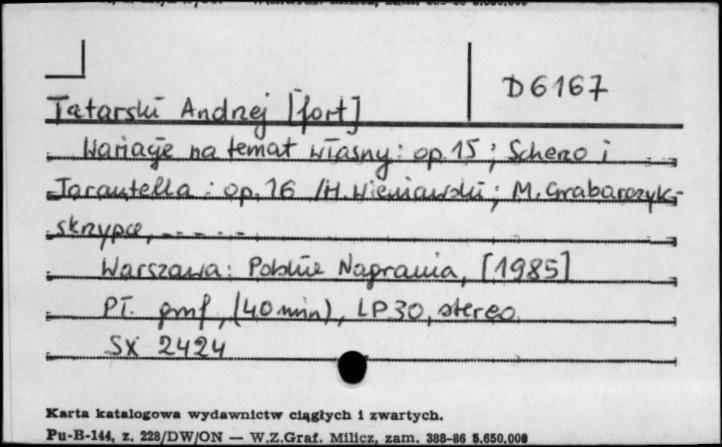 D6167
Tatarski Andrzej [fort]
Wariacje na temat własny : op. 15 ; Scherzo i
Tarantella : op. 16 / H. Wieniawski ; M. Grabarczyk -
skrzypce, - - - -
Warszawa : Polskie Nagrania, [1985]
Pł. gmf, (40 min), LP 30, stereo
SX 2424
Karta katalogowa wydawnictw ciągłych i zwartych.
Pu-B-144, z. 228/DW/ON — W.Z.Graf. Milicz, zam. 388-86 5.650.000